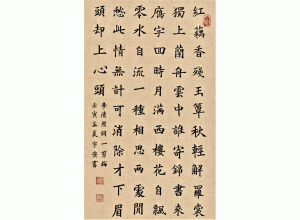 紅藕香殘玉簟秋輕解羅裳
獨上蘭舟雲中誰寄錦書來
雁字回時月滿西樓花自飄
零水自流一種相思兩處閒
愁此情無計可消除才下眉
頭却上心頭
李清照詞一剪梅
壬寅孟夏宇安書